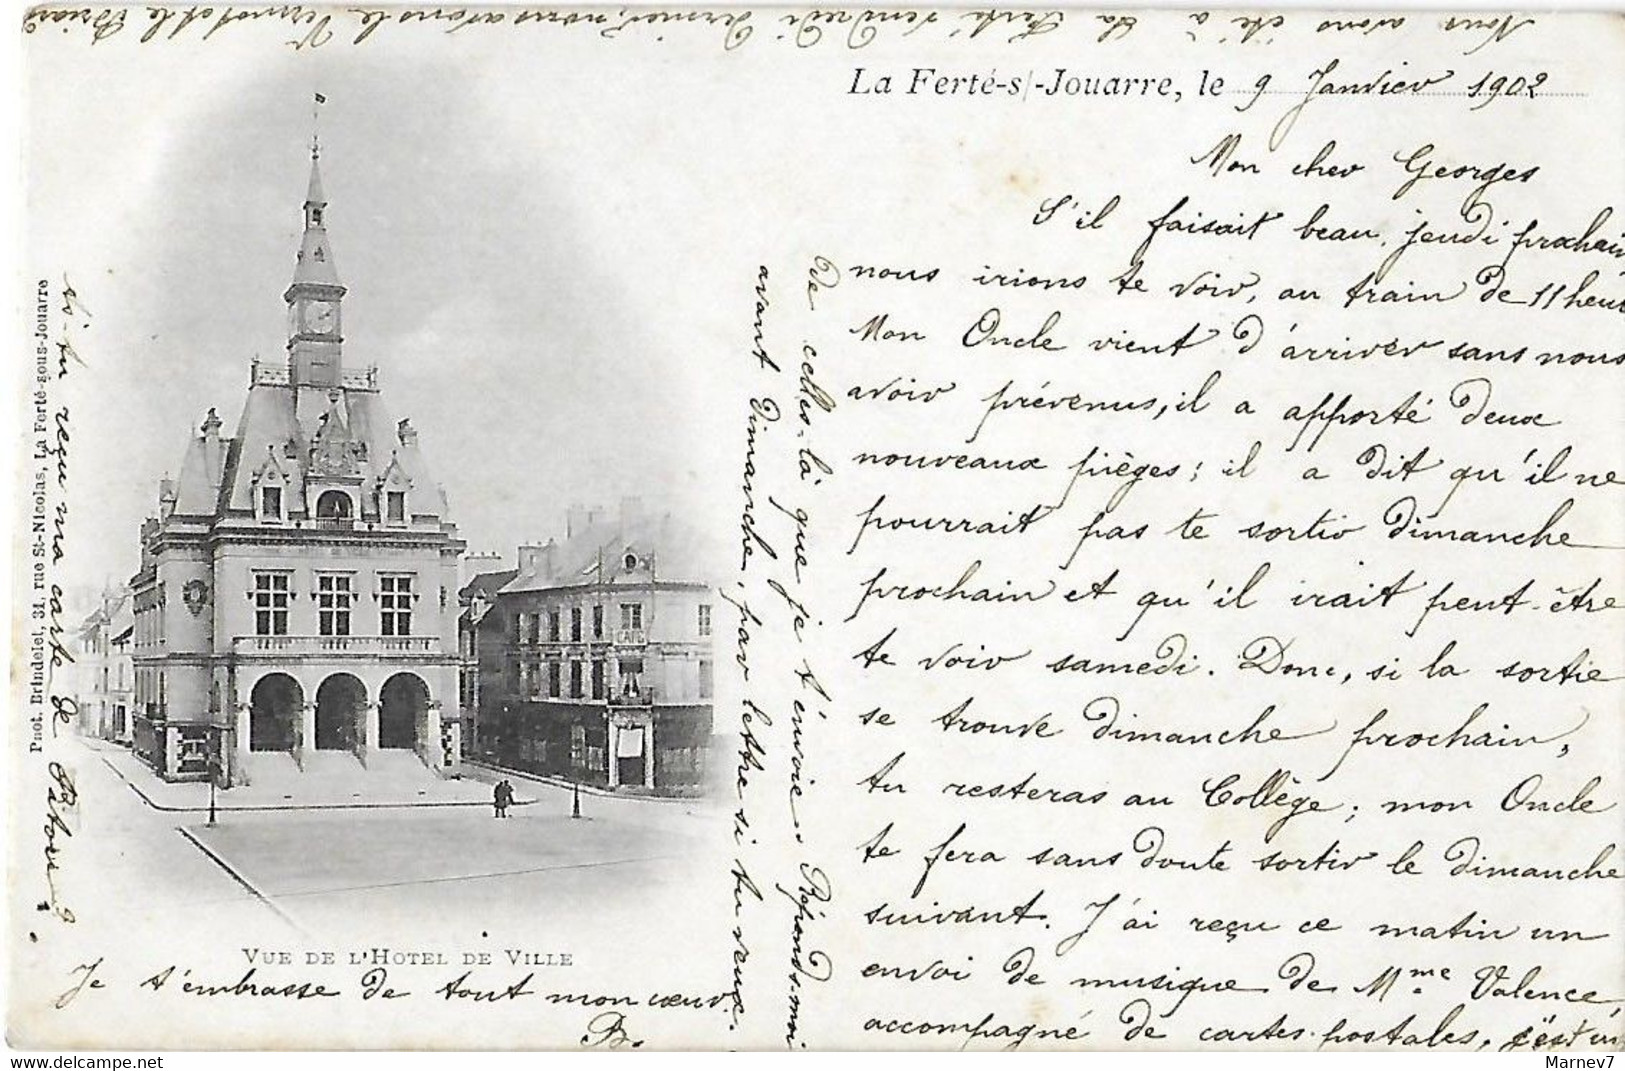 La Ferté-s/-Jouarre, le 9 Janvier 1902
Mon cher Georges
S'il faisait beau, jeudi prochain
nous irions te voir, au train de 11 heu
Mon Oncle vient d'arriver sans nous
avoir prévenus, il a apporté deux
nouveaux pièges; il a dit qu'il ne
pourrait pas te sortir dimanche
prochain et qu'il irait peut-être
te voir samedi. Donc, si la sortie
se trouve dimanche prochain,
tu resteras au Collège; mon Oncle
te fera sans doute sortir le dimanche
suivant. J'ai reçu ce matin un
envoi de musique de Mme Valence
accompagné de cartes-postales, c'est un
de celles-là que je t'envoie. Réponds-moi
avant Dimanche, par lettre si tu veux.
Je t'embrasse de tout mon cœur.
B.
As-tu reçu ma carte de ?
Nous avons été à La Ferté Vendredi dernier, nous avons le et le
VUE DE L'HOTEL DE VILLE
Phot. Brindelet, 31, rue St-Nicolas, La Ferté-sous-Jouarre
CAFÉ
Marnev7